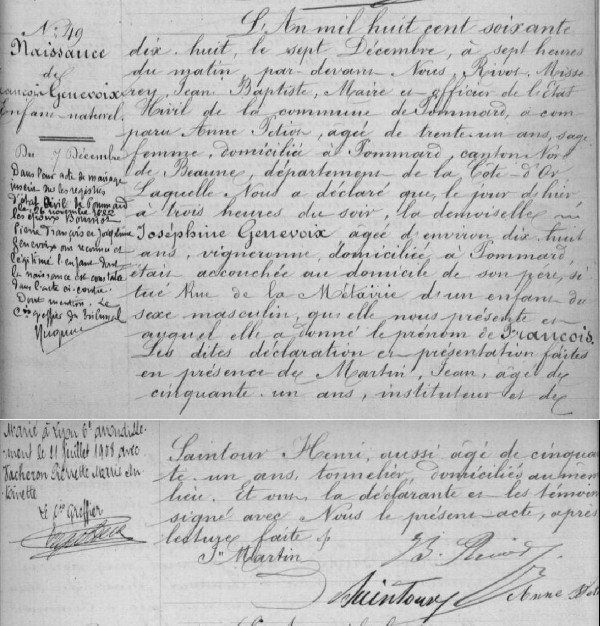 N° 49
Naissance
de
François Genevoix
Enfant naturel.
Du 7 Décembre
Dans l'acte de mariage
inscrit sur les registres
d'état civil de Pommard
le novembre
les époux
Pierre François et Joséphine
Genevoix ont reconnu et
légitimé l'enfant dont
la naissance est constatée
dans l'acte ci-contre.
Dont mention. Le
Cis greffier du tribunal
L'An mil huit cent soixante
dix-huit, le sept Décembre, à sept heures
du matin par-devant Nous, Rivot Misse
rey, Jean Baptiste, Maire et officier de l'Etat
Civil de la commune de Pommard, a com-
paru Anne agée de trente-un ans, sage
femme, domiciliée à Pommard, canton Nord
de Beaune, département de la Côte-d'Or
Laquelle Nous a déclaré que, le jour d'hier
à trois heures du soir, la demoiselle
Joséphine Genevoix agée d'environ dix-huit
ans, vigneronne, domiciliée à Pommard,
était accouchée au domicile de son père, si
tué Rue de la Métairie d'un enfant du
sexe masculin, qu'elle nous présente et
auquel elle a donné le prénom de François.
Les dites déclaration et présentation faites
en présence de Martin, Jean, âgé de
cinquante-un ans, instituteur et de
Marié à Lyon 6e arrondisse-
-ment le 11 juillet 1908 avec
Vacheron Marie An-
toinette
Le Cis Greffier
Saintour Henri, aussi âgé de cinquan
te-un ans, tonnelier, domiciliés au même
lieu. Et ont la déclarante et les témoins
signé avec Nous le présent acte, après
lecture faite
Jn Martin
B. Rivot
Saintoury
Anne